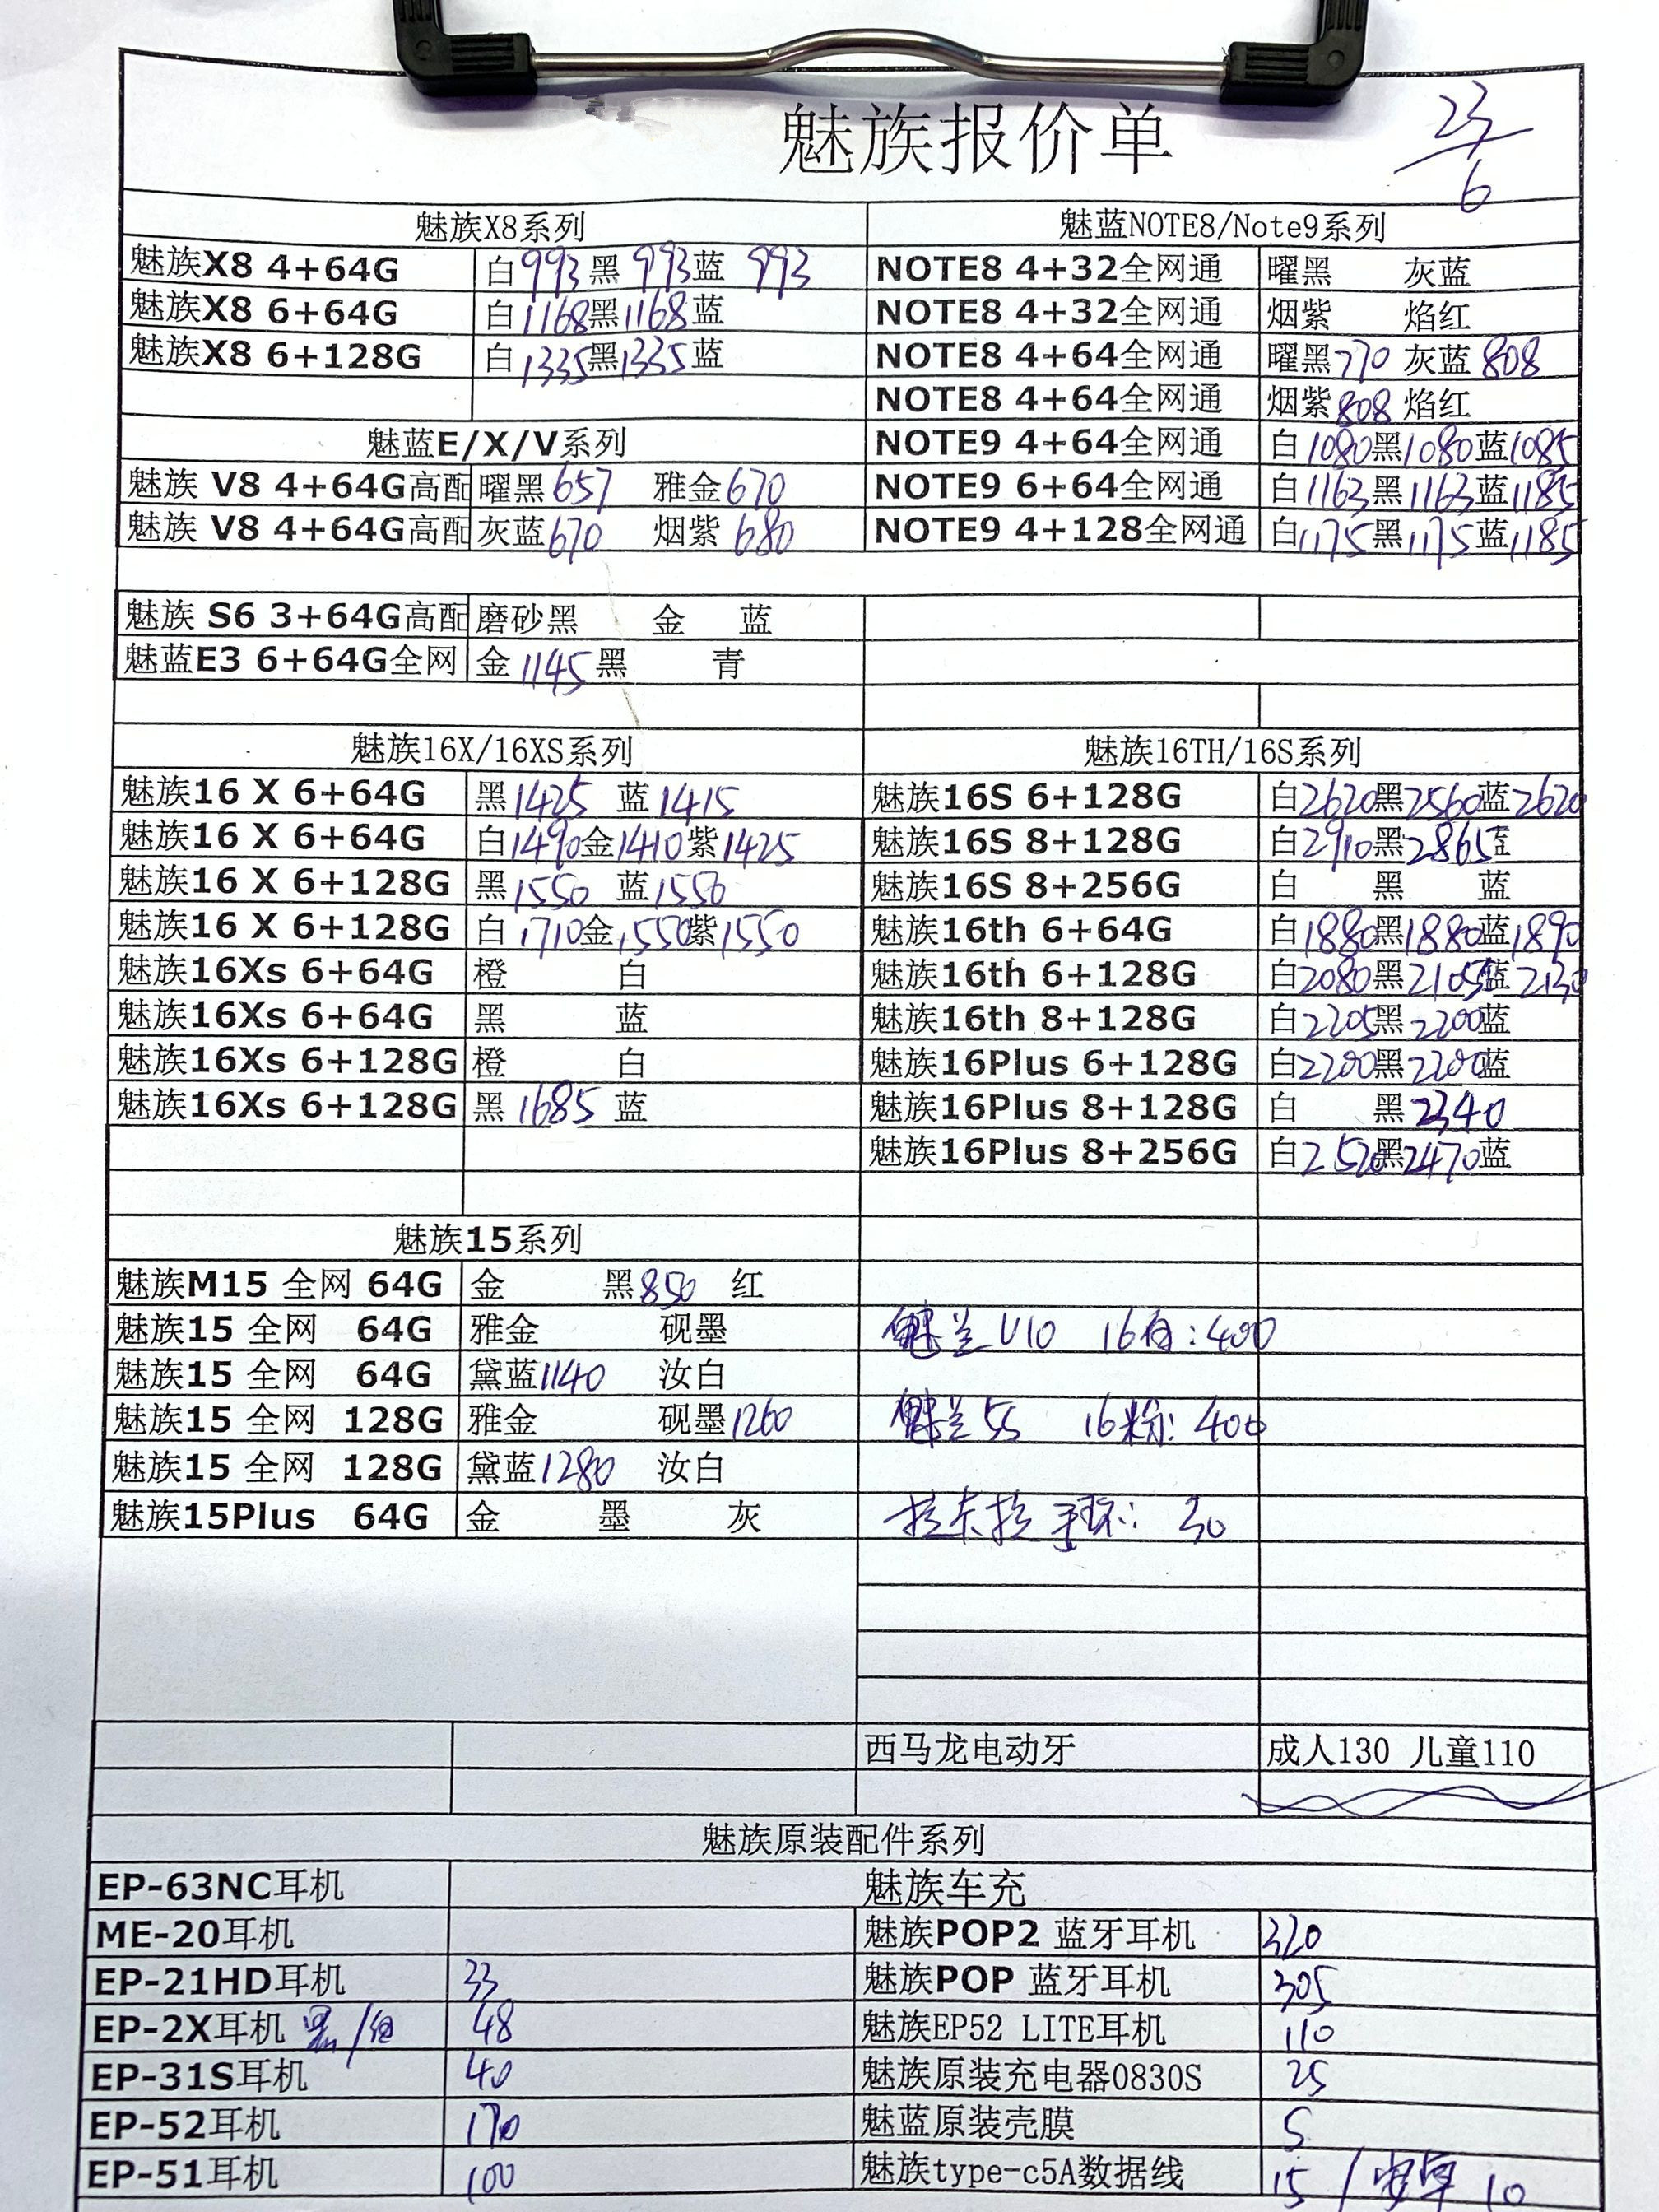 魅族报价单
23/6
魅族X8系列
魅族X8 4+64G 白993黑993蓝993
魅族X8 6+64G 白1168黑1168蓝
魅族X8 6+128G 白1335黑1335蓝
魅蓝E/X/V系列
魅族 V8 4+64G高配 曜黑657 雅金670
魅族 V8 4+64G高配 灰蓝670 烟紫680
魅族 S6 3+64G高配 磨砂黑 金 蓝
魅蓝E3 6+64G全网 金1145黑 青
魅蓝NOTE8/Note9系列
NOTE8 4+32全网通 曜黑 灰蓝
NOTE8 4+32全网通 烟紫 焰红
NOTE8 4+64全网通 曜黑770 灰蓝808
NOTE8 4+64全网通 烟紫808 焰红
NOTE9 4+64全网通 白1080黑1080蓝1085
NOTE9 6+64全网通 白1163黑1163蓝1185
NOTE9 4+128全网通 白1175黑1175蓝1185
魅族16X/16XS系列
魅族16 X 6+64G 黑1425 蓝1415
魅族16 X 6+64G 白1490金1410紫1425
魅族16 X 6+128G 黑1550 蓝1550
魅族16 X 6+128G 白1710金1550紫1550
魅族16Xs 6+64G 橙 白
魅族16Xs 6+64G 黑 蓝
魅族16Xs 6+128G 橙 白
魅族16Xs 6+128G 黑1685 蓝
魅族16TH/16S系列
魅族16S 6+128G 白2620黑2560蓝2620
魅族16S 8+128G 白2910黑2865蓝
魅族16S 8+256G 白 黑 蓝
魅族16th 6+64G 白1880黑1880蓝1890
魅族16th 6+128G 白2080黑2105蓝2130
魅族16th 8+128G 白2205黑2200蓝
魅族16Plus 6+128G 白2200黑2200蓝
魅族16Plus 8+128G 白 黑2340
魅族16Plus 8+256G 白2520黑2470蓝
魅族15系列
魅族M15 全网 64G 金 黑850 红
魅族15 全网 64G 雅金 砚墨
魅族15 全网 64G 黛蓝1140 汝白
魅族15 全网 128G 雅金 砚墨1260
魅族15 全网 128G 黛蓝1280 汝白
魅族15Plus 64G 金 墨 灰
魅兰U10 16白:400
魅兰5S 16粉:400
拉卡拉 手环: 30
西马龙电动牙 成人130 儿童110
魅族原装配件系列
EP-63NC耳机 魅族车充
ME-20耳机 魅族POP2 蓝牙耳机 320
EP-21HD耳机 33 魅族POP 蓝牙耳机 305
EP-2X耳机 黑/白 48 魅族EP52 LITE耳机 110
EP-31S耳机 40 魅族原装充电器0830S 25
EP-52耳机 170 魅蓝原装壳膜 5
EP-51耳机 100 魅族type-c5A数据线 15 / 安卓 10